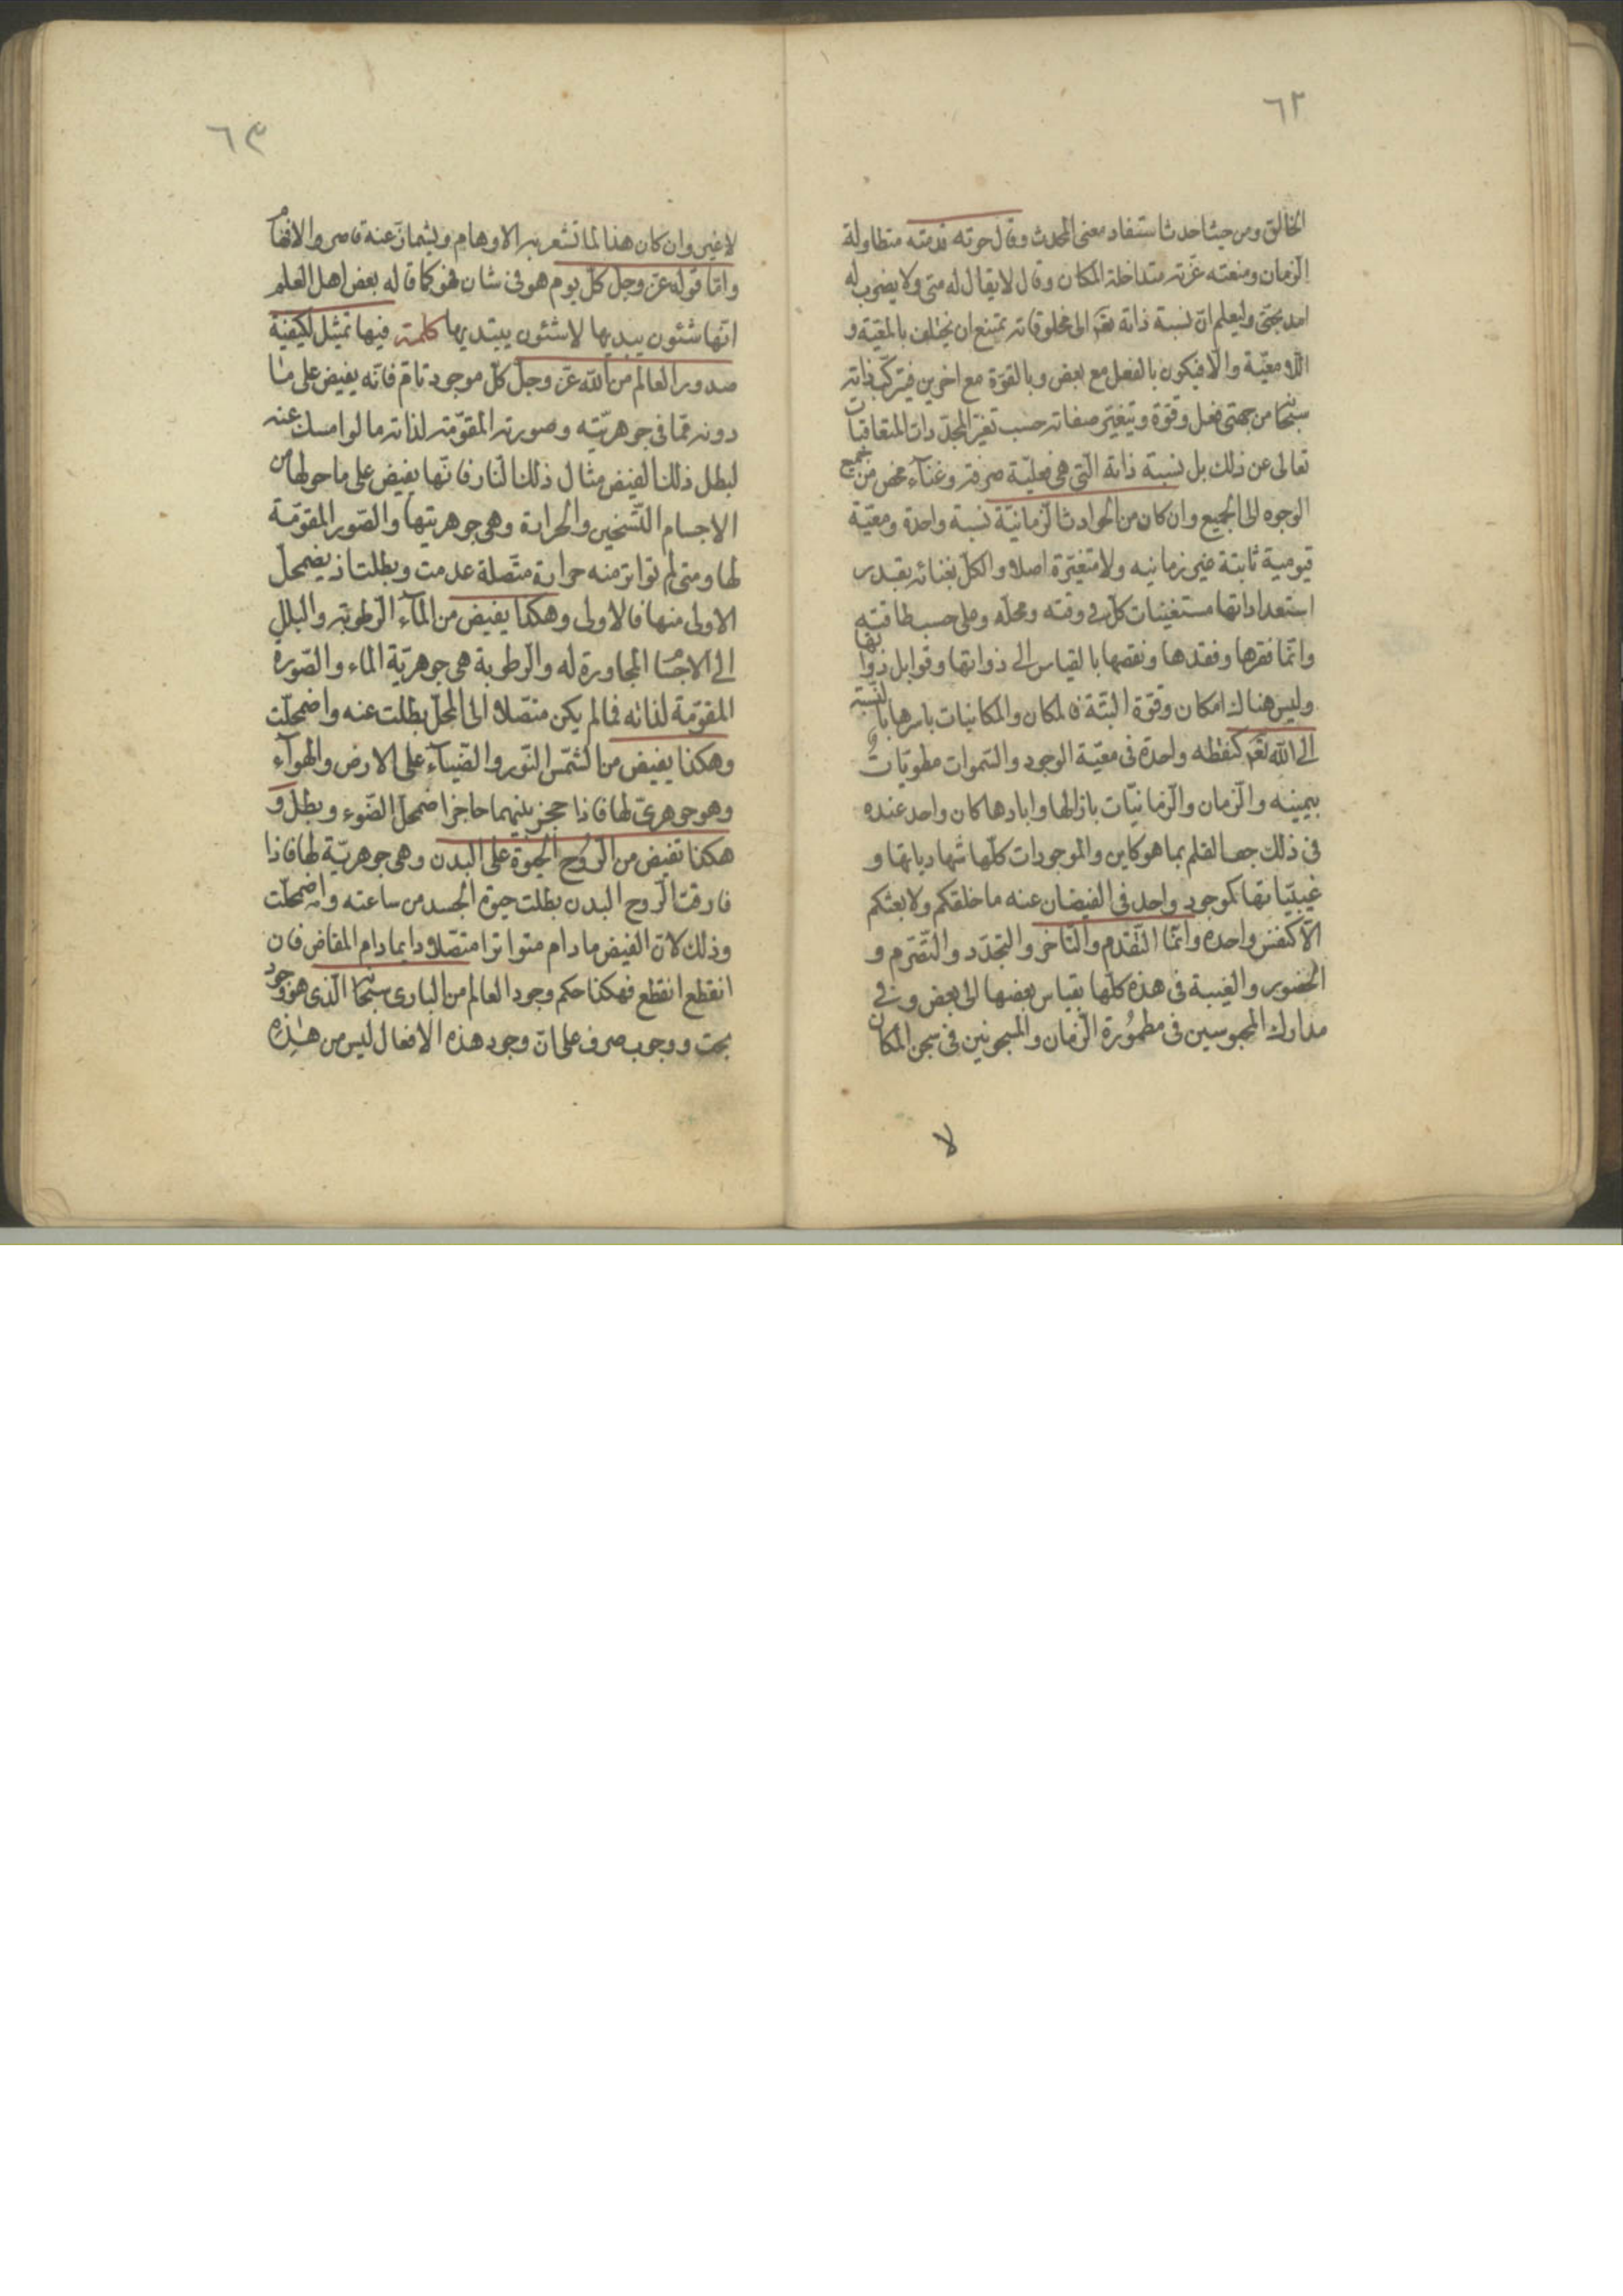 ٦٢
الخالق ومن حيث احدث استفاد معنى المحدث وقال حرته قدمته متطاولة
الزمان ومنعته عزته متداخلة المكان وقال لا يقال له متى ولا يضرب له
امد بحتى وليعلم ان نسبة ذاته تعم الى مخلوقاته تمتنع ان يختلف بالمعية و
اللا معية والا فيكون بالفعل مع بعض وبالقوة مع اخرين فيتركب ذاته
سبحانه من جهتى فعل وقوة ويتغير صفاته حسب تغير المجددات المتعاقبات
تعالى عن ذلك بل نسبة ذاته التى هى فعلية صرفة وغناء محض من جميع
الوجوه الى الجميع وان كان من الحوادث الزمانية نسبة واحدة ومعية
قيومية ثابتة غير زمانيه ولا متغيرة اصلا والكل بغنائه بقدر
استعداداتها مستغنيات كل فى وقته ومحله وعلى حسب طاقته
وانما فقرها وفقدها ونقصها بالقياس الى ذواتها وقوابل ذواتها
وليس هناك امكان وقوة البتة فالمكان والمكانيات باسرها بالنسبة
الى الله تعم كنقطه واحدة فى معية الوجود والسموات مطويات
بيمينه والزمان والزمانيات بازالها وابادها كان واحد عنده
فى ذلك جف القلم بما هو كاين والموجودات كلها شهادياتها و
غيبياتها كموجود واحد فى الفيضان عنه ما خلقكم ولا بعثكم
الا كنفس واحده وانما التقدم والتاخر والتجدد والتصرم و
الحضور والغيبة فى هذه كلها بقياس بعضها الى بعض وفى
مدارك المحبوسين فى مطمورة الزمان والمسجونين فى سجن المكان
لا
٦٣
لا غير وان كان هذا لما تشعر به الاوهام ويشماز عنه قاصروا الافهام
واما قوله عز وجل كل يوم هو فى شان فهو كما قاله بعض اهل العلم
انها شئون يبديها لا شئون يبتديها كلمة فيها تمثيل لكيفية
صدور العالم من الله عز وجل كل موجود تام فانه يفيض على ما
دونه مما فى جوهريته وصورته المقومة لذاته ما لو امسك عنه
لبطل ذلك الفيض مثال ذلك النار فانها يفيض على ما حولها من
الاجسام التسخين والحرارة وهى جوهريتها والصور المقومة
لها ومتى لم تواتر منه حرارة متصلة عدمت وبطلت اذ يضمحل
الاولى منها فالاولى وهكذا يفيض من الماء الرطوبة والبلل
الى الاجسام المجاورة له والرطوبة هى جوهرية الماء والصورة
المقومة لذاته فما لم يكن متصلا الى المحل بطلت عنه واضمحلت
وهكذا يفيض من الشمس النور والضياء على الارض والهواء
وهو جوهرى لها فاذا حجز بينهما حاجز اضمحل الضوء وبطل و
هكذا تفيض من الروح الحيوة على البدن وهى جوهرية لها فاذا
فارقت الروح البدن بطلت حيوة الجسد من ساعته واضمحلت
وذلك لان الفيض ما دام متواترا متصلا دايما دام المفاض فان
انقطع انقطع فهكذا حكم وجود العالم من البارى سبحانه الذى هو وجود
بحت ووجوب صرف على ان وجود هذه الافعال ليس من هذه